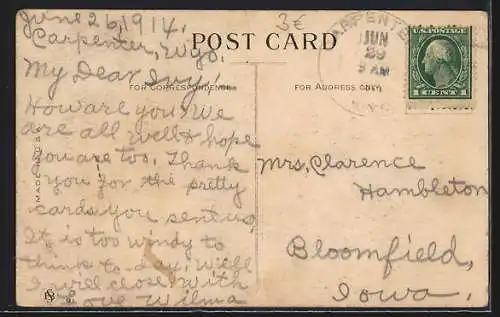 June 26, 1914.
Carpenter, Wyo.
My Dear Ivy!
How are you. We
are all well & hope
you are too. Thank
you for the pretty
cards you sent us,
It is too windy to
think to-day. Well
I will close with
Love Wilma
3€
POST CARD
FOR CORRESPONDENCE
FOR ADDRESS ONLY
CARPENTER
JUN
29
AM
WYO.
U.S. POSTAGE
1 CENT 1
Mrs. Clarence
Hambleton
Bloomfield,
Iowa.
MADE IN